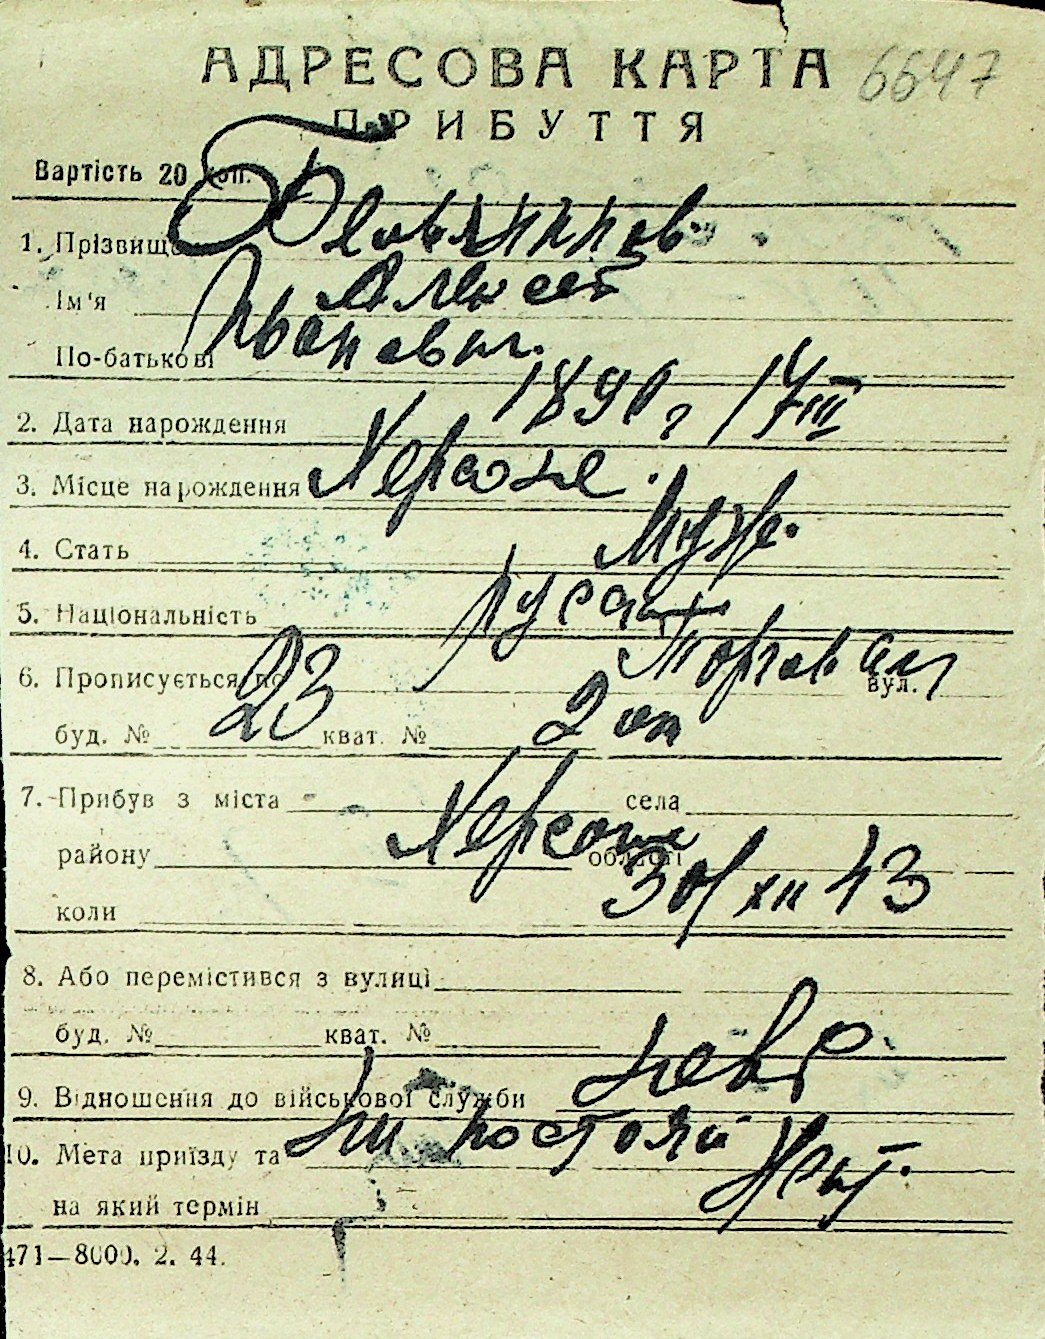 АДРЕСОВА КАРТА 6647
ПРИБУТТЯ
Вартість 20 коп.
1. Прізвище
Ім'я Алексей
По-батькові Иванович
2. Дата нарождення 1890 г 17/III
3. Місце народження Херсоне.
4. Стать Муж.
5. Національність
6. Прописується по Торговая вул.
буд. № 23 кват. № 2 оп
7. Прибув з міста села
району Херсона області
коли 30/XII 43
8. Або перемістився з вулиці
буд. № кват. №
9. Відношення до військової служби
10. Мета приїзду та На постоян
на який термін жит.
471—8000. 2. 44.